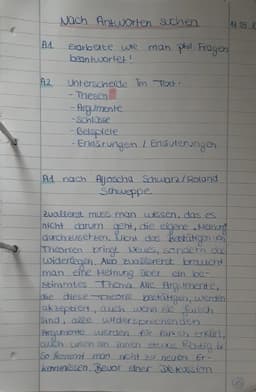 Nach Antworten suchen
A1 Erarbeite wie man phil. Fragen
beantwortet!
A2 Unterscheide im Text:
- Thesen
- Argumente
- Schlüsse
- Beispiele
- Erklärungen / Erläuterungen
A1 nach Aljoscha Schwarz/Roland
Schweppe
Zuallerst muss man wissen, das es
nicht darum geht, die eigene Meinung
durchzusetzen. Nicht das bestätigen von
Theorien bringt Neues, sondern das
Widerlegen. Also zuallererst braucht
man eine Meinung über ein be-
stimmtes Thema. Alle Argumente,
die diese Theorie bestätigen, werden
akzeptiert, auch wenn sie falsch
sind, alle widersprechenden
Argumente werden für falsch erklärt,
auch wenn an ihnen etwas richtig is
So kommt man nicht zu neuen Er-
kenntnissen. Bevor einer Diskussion